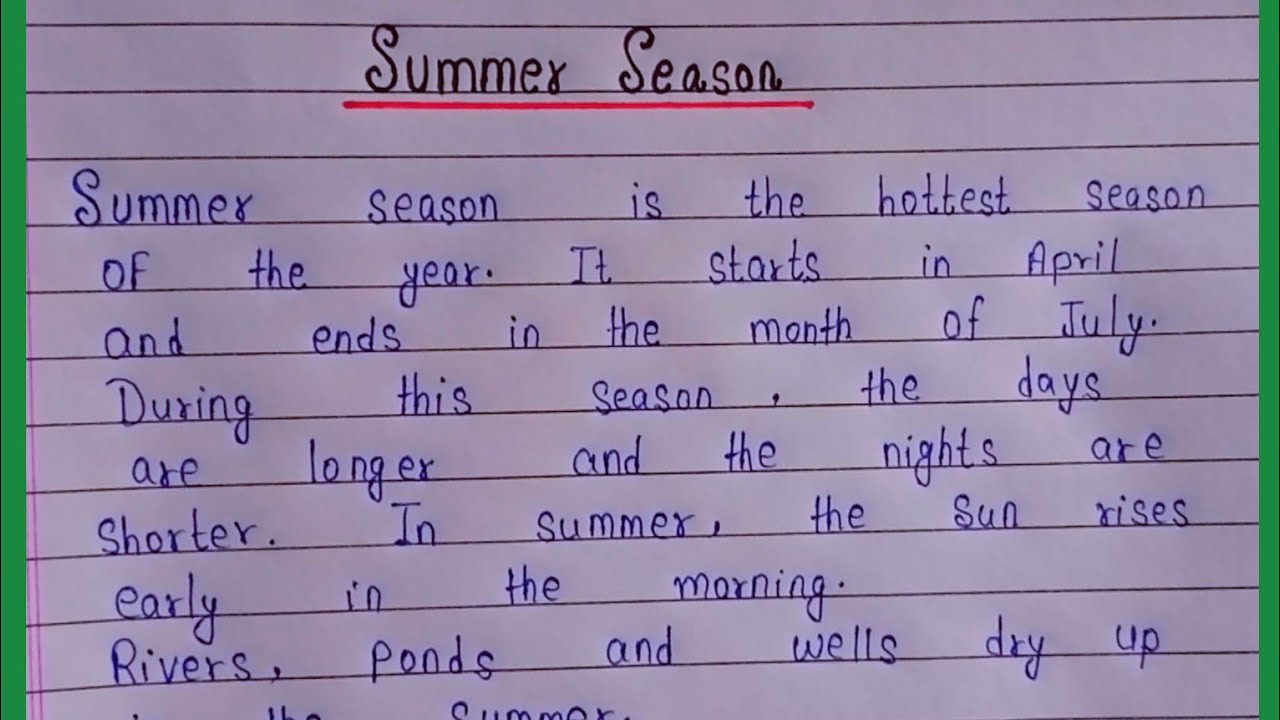 Summer Season
Summer season is the hottest season
of the year. It starts in April
and ends in the month of July.
During this season, the days
are longer and the nights are
shorter. In summer, the sun rises
early in the morning.
Rivers, ponds and wells dry up
in the summer.